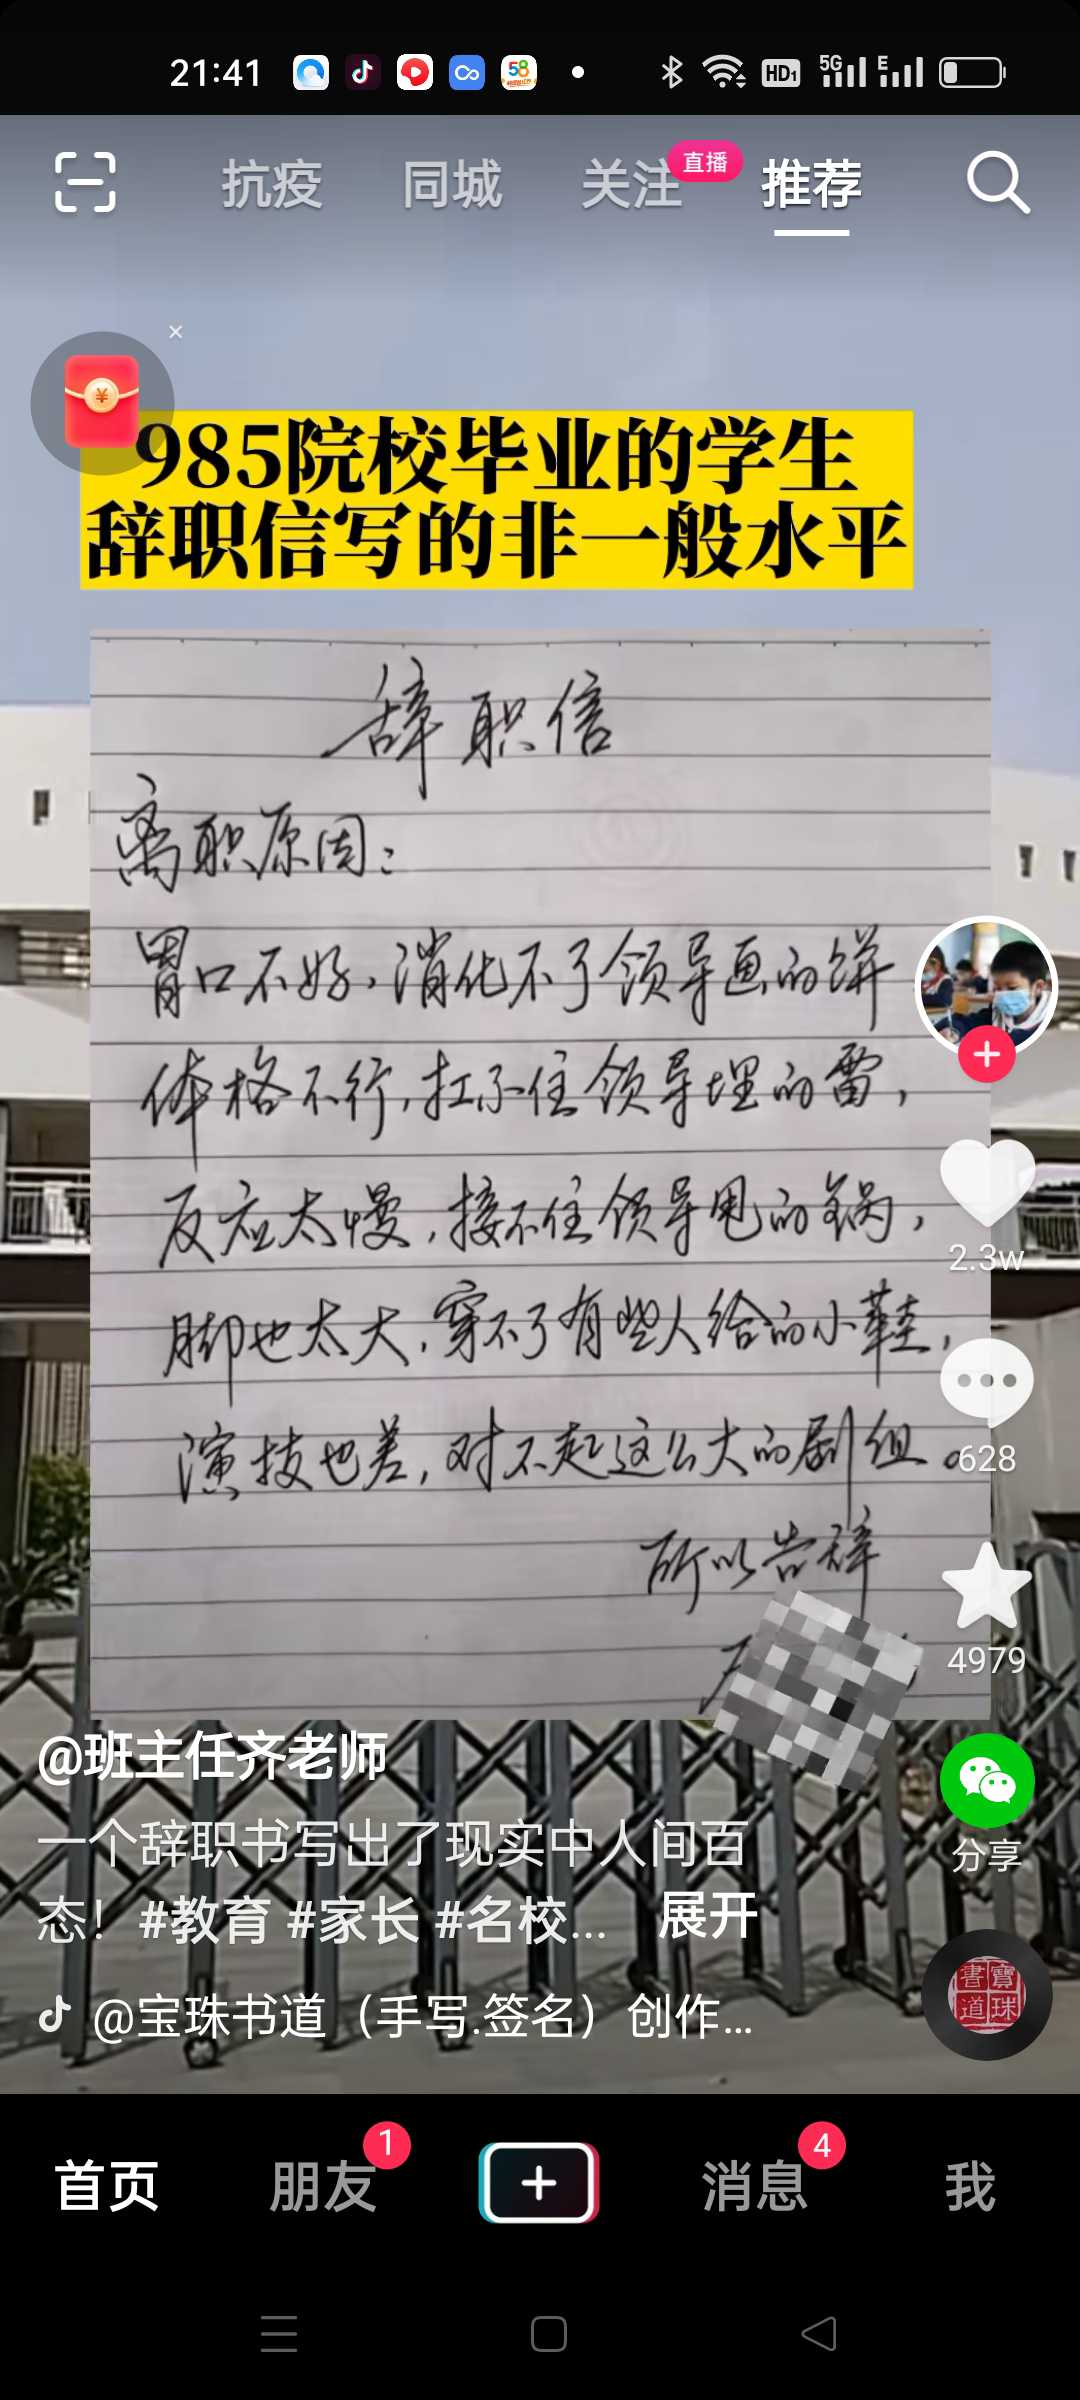 21:41
58
HD1
5G
E
抗疫 同城 关注 直播 推荐
¥
985院校毕业的学生
辞职信写的非一般水平
辞职信
离职原因：
胃口不好，消化不了领导画的饼
体格不行，扛不住领导埋的雷，
反应太慢，接不住领导甩的锅，
脚也太大，穿不了有些人给的小鞋，
演技也差，对不起这么大的剧组。
所以告辞
2.3w
628
4979
分享
@班主任齐老师
一个辞职书写出了现实中人间百
态！#教育 #家长 #名校... 展开
@宝珠书道（手写.签名）创作...
書寶
道珠
首页 朋友 1 消息 4 我